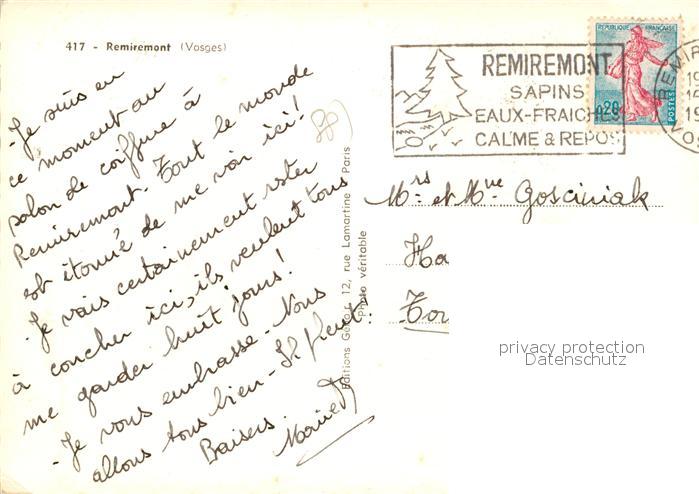 417 - Remiremont (Vosges)
- Je suis en
ce moment au
salon de coiffure à
Remiremont. Tout le monde
est étonné de me voir ici!
- Je vais certainement rester
à coucher ici, ils veulent tous
me garder huit jours!
- Je vous embrasse - Nous
allons tous bien - Il pleut.
Baisers.
Editions Gérar, 12, rue Lamartine Paris
Photo véritable
REMIREMONT
SAPINS
EAUX-FRAICHES
CALME & REPOS
REPUBLIQUE FRANÇAISE
0,20
POSTES
REMIR
19
VOS
Mrs et Mme Gosciniak
Ha
Tor
privacy protection
Datenschutz